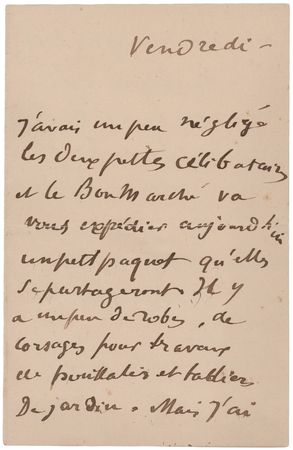 Vendredi –
J'avais un peu négligé
les deux petites célibataires
et le Bon Marché va
vous expédier aujourd'hui
un petit paquet qu'elles
se partageront Il y
a un peu de robes, de
corsages pour travaux
et tabliers
De jardin. Mais j'ai